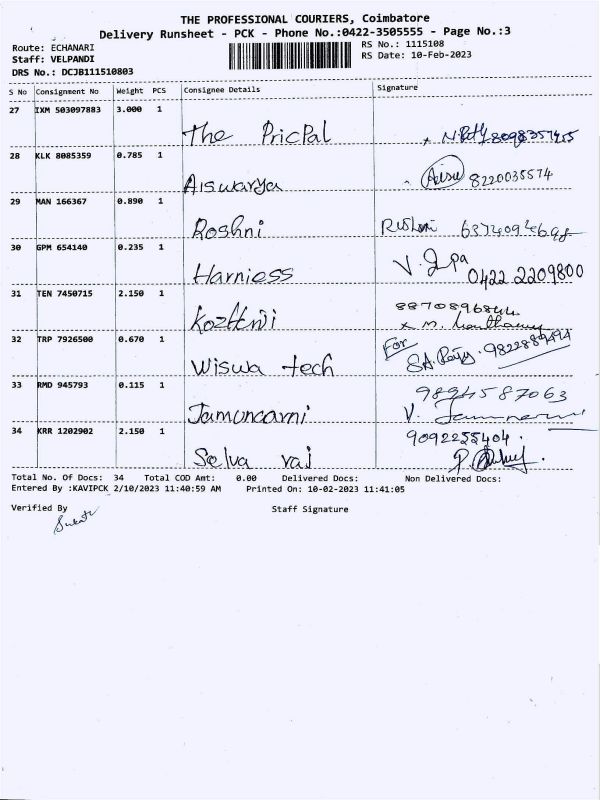 THE PROFESSIONAL COURIERS, Coimbatore
Delivery Runsheet - PCK - Phone No.:0422-3505555 - Page No.:3
Route: ECHANARI
RS No.: 1115108
Staff: VELPANDI
RS Date: 10-Feb-2023
DRS No.: DCJB111510803
S No Consignment No Weight PCS Consignee Details Signature
27 IXM 503097883 3.000 1
The PricPal
28 KLK 8085359 0.785 1
Aiswarya 8220035574
29 MAN 166367 0.890 1
Roshni
30 GPM 654140 0.235 1
Harniess 0422 2209800
31 TEN 7450715 2.150 1
32 TRP 7926500 0.670 1
For
Wiswa tech
33 RMD 945793 0.115 1
9894587063
34 KRR 1202902 2.150 1
9092255404
Selva raj
Total No. Of Docs: 34 Total COD Amt: 0.00 Delivered Docs: Non Delivered Docs:
Entered By :KAVIPCK 2/10/2023 11:40:59 AM Printed On: 10-02-2023 11:41:05
Verified By Staff Signature